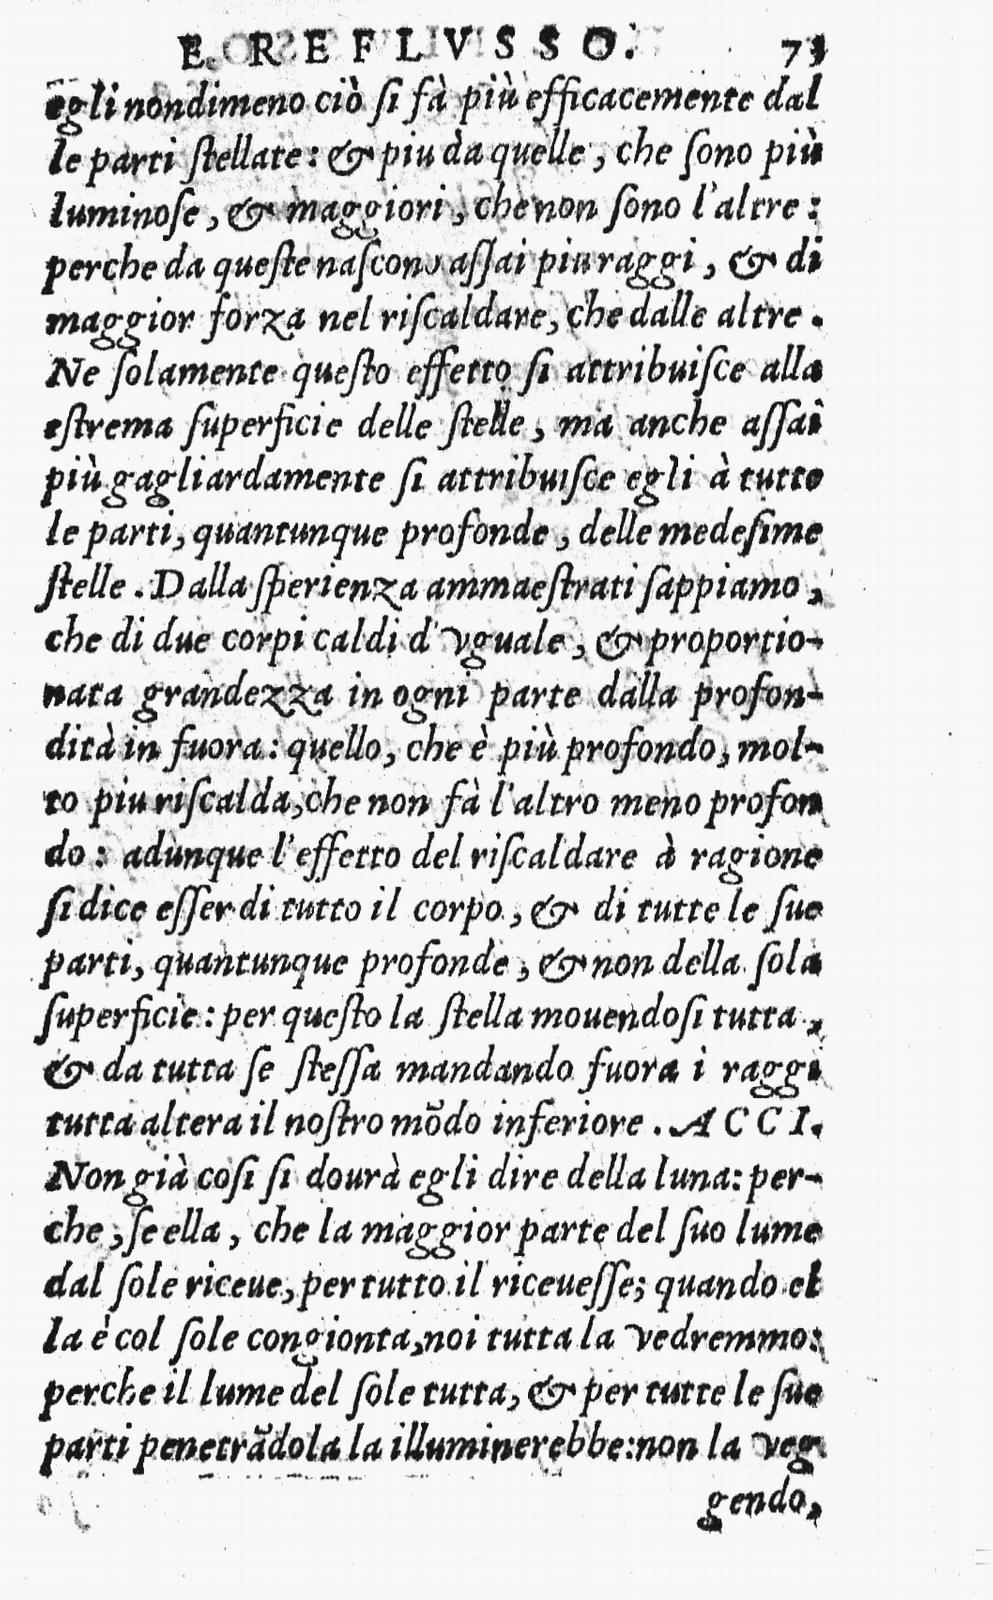 E REFLVSSO. 73
egli nondimeno ciò ſi fà più efficacemente dal
le parti ſtellate: & piu da quelle, che ſono più
luminoſe, & maggiori, che non ſono l'altre:
perche da queſte naſcono aſſai piu raggi, & di
maggior forza nel riſcaldare, che dalle altre.
Ne ſolamente queſto effetto ſi attribuiſce alla
eſtrema ſuperficie delle ſtelle, ma anche aſſai
più gagliardamente ſi attribuiſce egli à tutte
le parti, quantunque profonde, delle medeſime
ſtelle. Dalla ſperienza ammaeſtrati ſappiamo,
che di due corpi caldi d'vguale, & proportio-
nata grandezza in ogni parte dalla profon-
dità in fuora: quello, che è più profondo, mol-
to piu riſcalda, che non fà l'altro meno profon
do: adunque l'effetto del riſcaldare à ragione
ſi dice eſſer di tutto il corpo, & di tutte le ſue
parti, quantunque profonde, & non della ſola
ſuperficie: per queſto la ſtella mouendoſi tutta,
& da tutta ſe ſteſſa mandando fuora i raggi
tutta altera il noſtro mōdo inferiore. ACCI.
Non già coſi ſi dourà egli dire della luna: per-
che, ſe ella, che la maggior parte del ſuo lume
dal ſole riceue, per tutto il riceueſſe; quando el
la è col ſole congionta, noi tutta la vedremmo:
perche il lume del ſole tutta, & per tutte le ſue
parti penetrādola la illuminerebbe: non la veg
gendo,